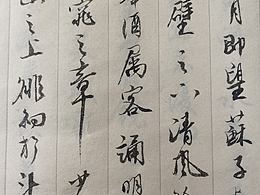 月即望蘇子與
壁之下清風
酒属客誦明
窕之章少
山之上徘徊於斗